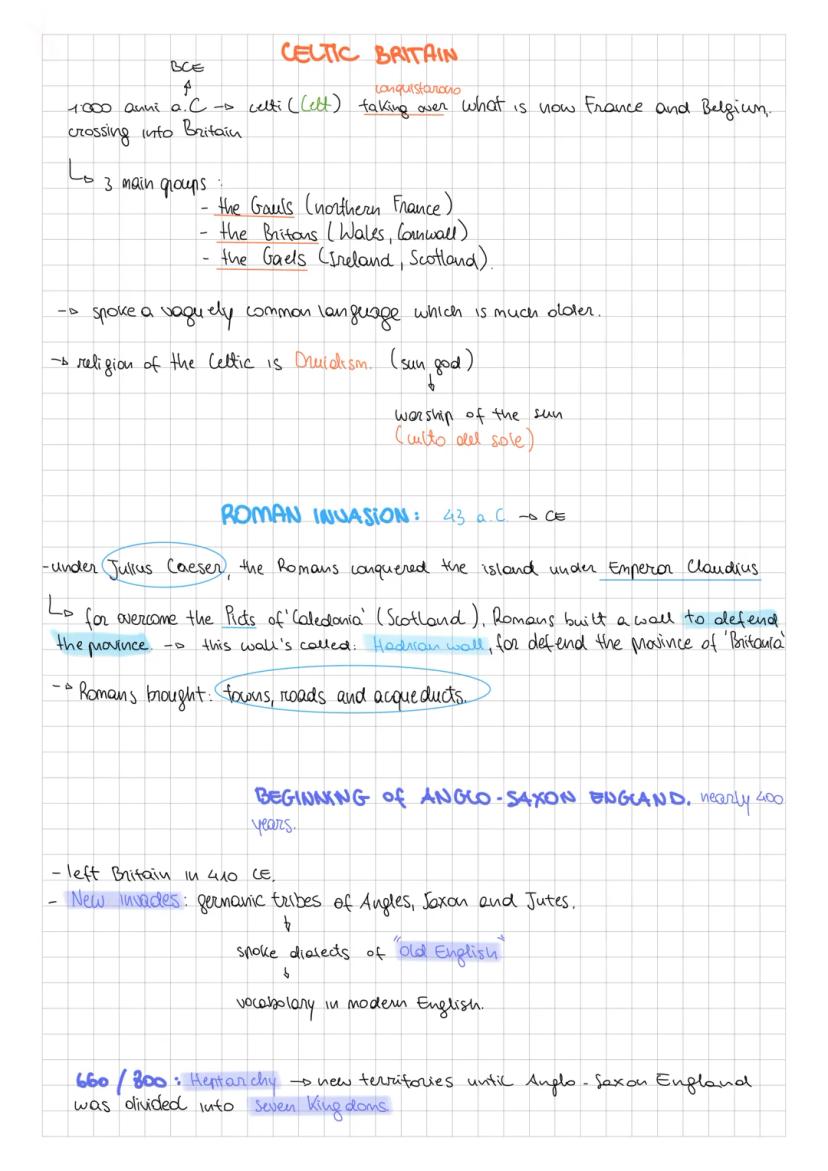 CELTIC BRITAIN
BCE
conquistarono
1000 anni a.C → celti (Celt) taking over what is now France and Belgium,
crossing into Britain
↳ 3 main groups :
- the Gauls (northern France)
- the Britons (Wales, Cornwall)
- the Gaels (Ireland, Scotland).
→ spoke a vaguely common language which is much older.
→ religion of the Celtic is Druidism. (sun god)
worship of the sun
(culto del sole)
ROMAN INVASION: 43 a.C. → CE
-under Julius Caeser, the Romans conquered the island under Emperor Claudius
↳ for overcome the Picts of 'Caledonia' (Scotland), Romans built a wall to defend
the province. → this wall's called: Hadrian wall, for defend the province of 'Britania'
→ Romans brought: towns, roads and acqueducts.
BEGINNING of ANGLO-SAXON ENGLAND. nearly 400
years.
- left Britain in 410 CE.
- New invades: germanic tribes of Angles, Saxon and Jutes.
spoke dialects of "Old English"
vocabolary in modern English.
660/800: Heptarchy → new territories until Anglo-Saxon England
was divided into seven Kingdoms